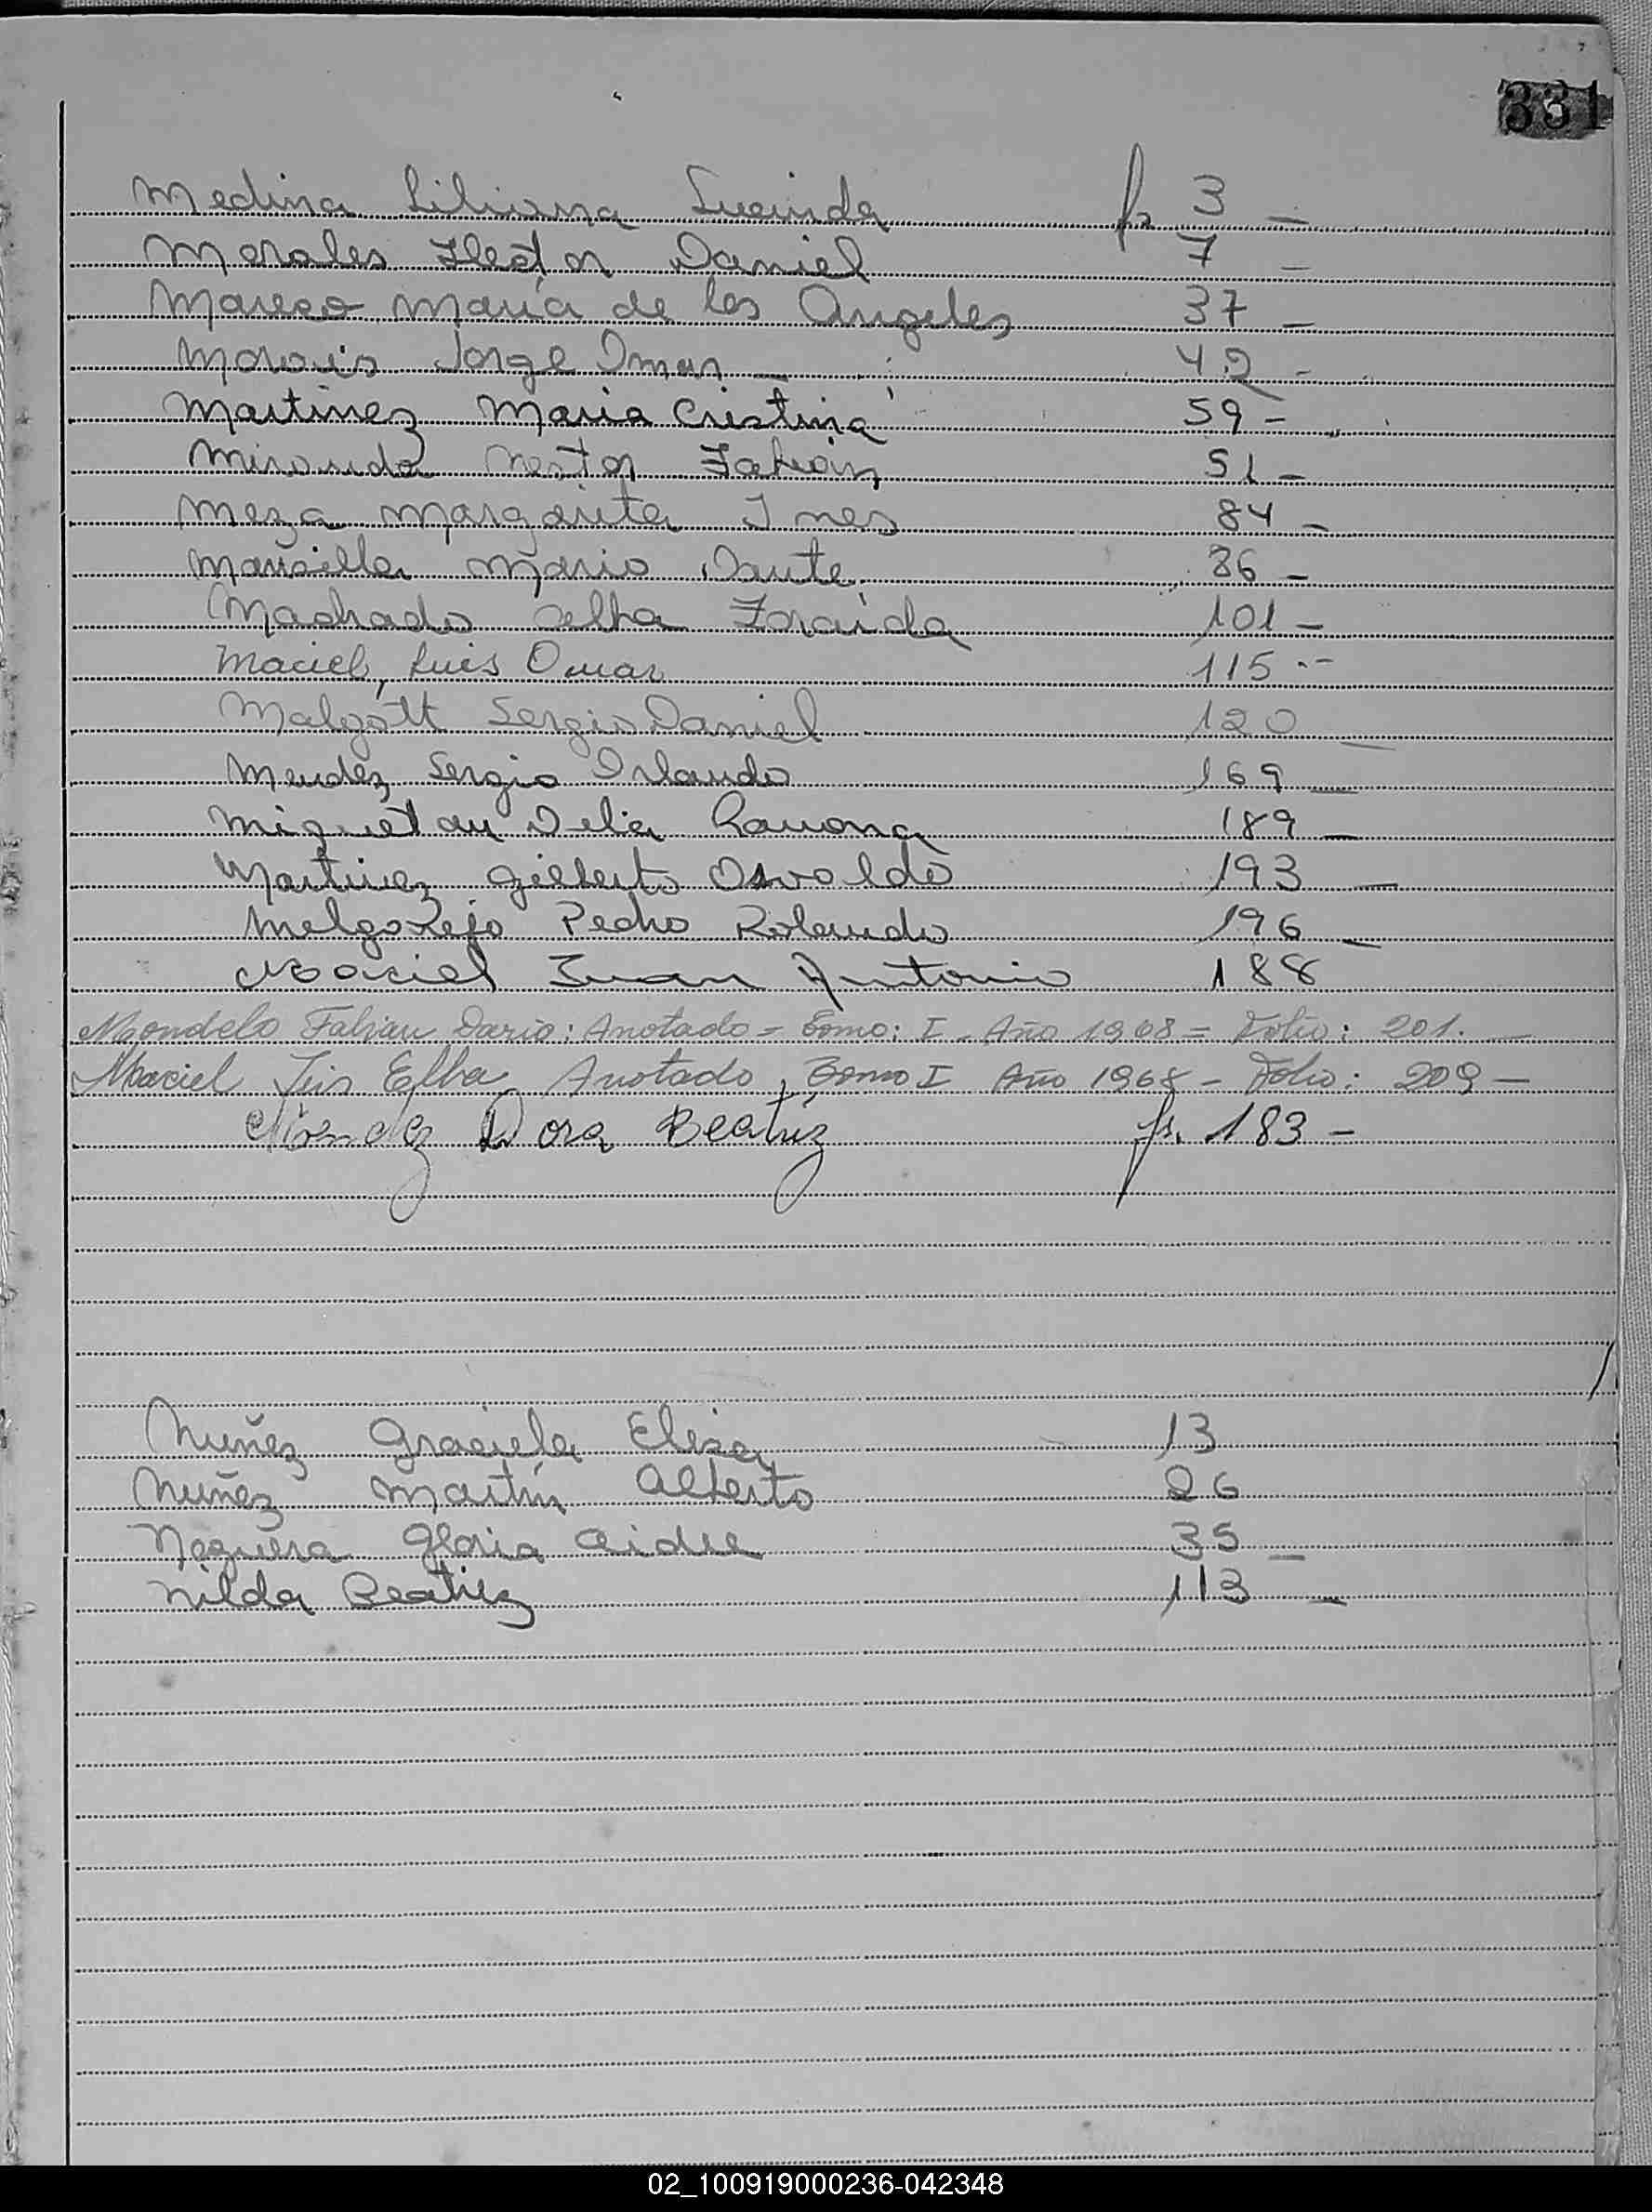 331
Medina Liliana Lucinda fs 3 —
Morales Hector Daniel 7 —
Mareco María de los Angeles 37 —
Jorge Omar — 42 -
Martinez Maria Cristina 59 -
Miranda Nestor Fabián 51 —
Meza Margarita Ines 84 —
Mansilla Mario Dante 86 —
Machado Zoraida 101 —
Maciel, Luis Omar 115 --
Malgott Sergio Daniel 120 —
Mendez Sergio Orlando 169 —
Delia Ramona 189 —
Martinez Gilberto Osvaldo 193 —
Melgarejo Pedro Rolando 196 —
Maciel Juan Antonio 188
Mondelo Fabian Dario: Anotado = Tomo: I - Año 1968 = Folio: 201. —
Maciel Elba Anotado, Tomo I Año 1968 - Folio: 209 —
Méndez Dora Beatríz fs. 183 -
Nuñez Graciela Elisa 13
Nuñez Martín Alberto 26
Noguera Gloria Aidee 35 —
Nilda Beatriz 113 —
02_100919000236-042348